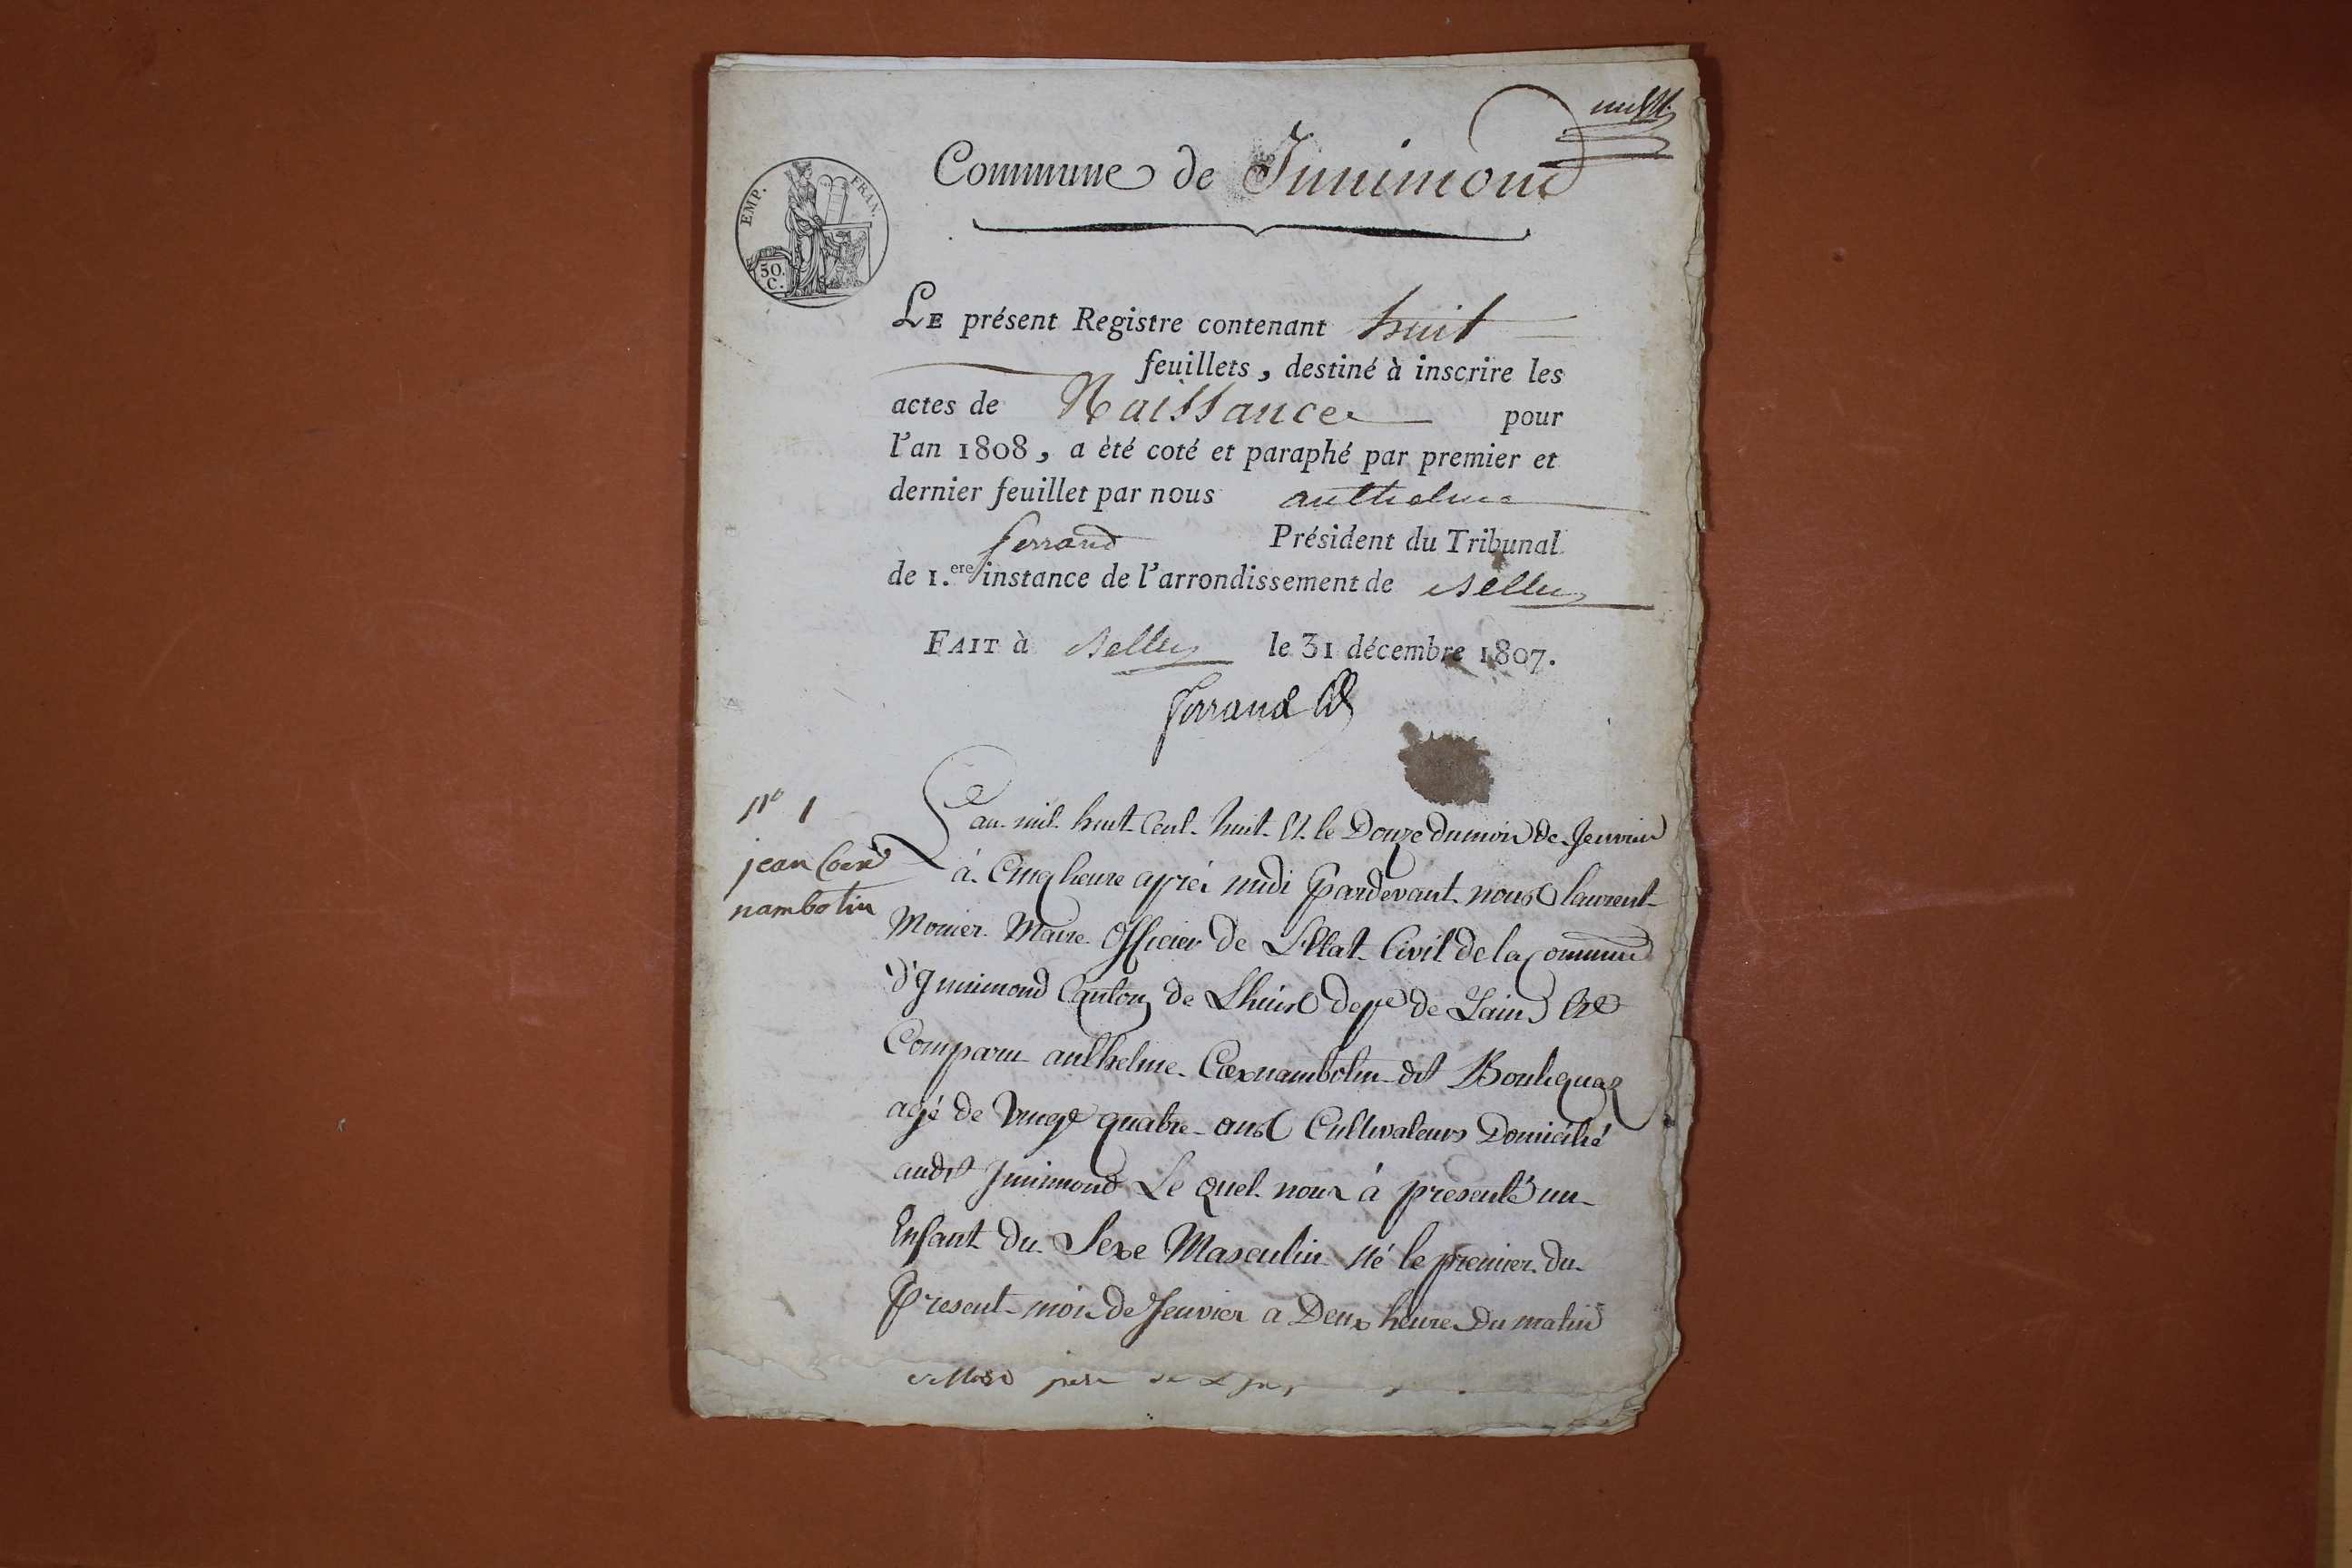 Commune de Innimond
EMP. FRAN.
50.
C.
LE présent Registre contenant huit
feuillets, destiné à inscrire les
actes de Naissance pour
l'an 1808, a èté coté et paraphé par premier et
dernier feuillet par nous anthelme
ferrand Président du Tribunal
de 1.ere instance de l'arrondissement de Belley
FAIT à Belley le 31 décembre 1807.
ferrand
No 1
jean Coex
nambotin
L'an mil huit Cent huit Et le Douze du mois de Jenvier
à Cinq heure aprés midi Pardevant nous laurent
Monier Maire Officier de L'Etat Civil de la Commune
d'Innimond Canton de Lhuis dept de Lain Est
Comparu anthelme Coexnambotin dit Boutiquaz
agé de vingt quatre ans Cultivateurs Domicilié
audit Innimond Le quel nous à presenté un
Enfant du Sexe Masculin né le premier du
Present mois de Jenvier a Deux heures Du matin